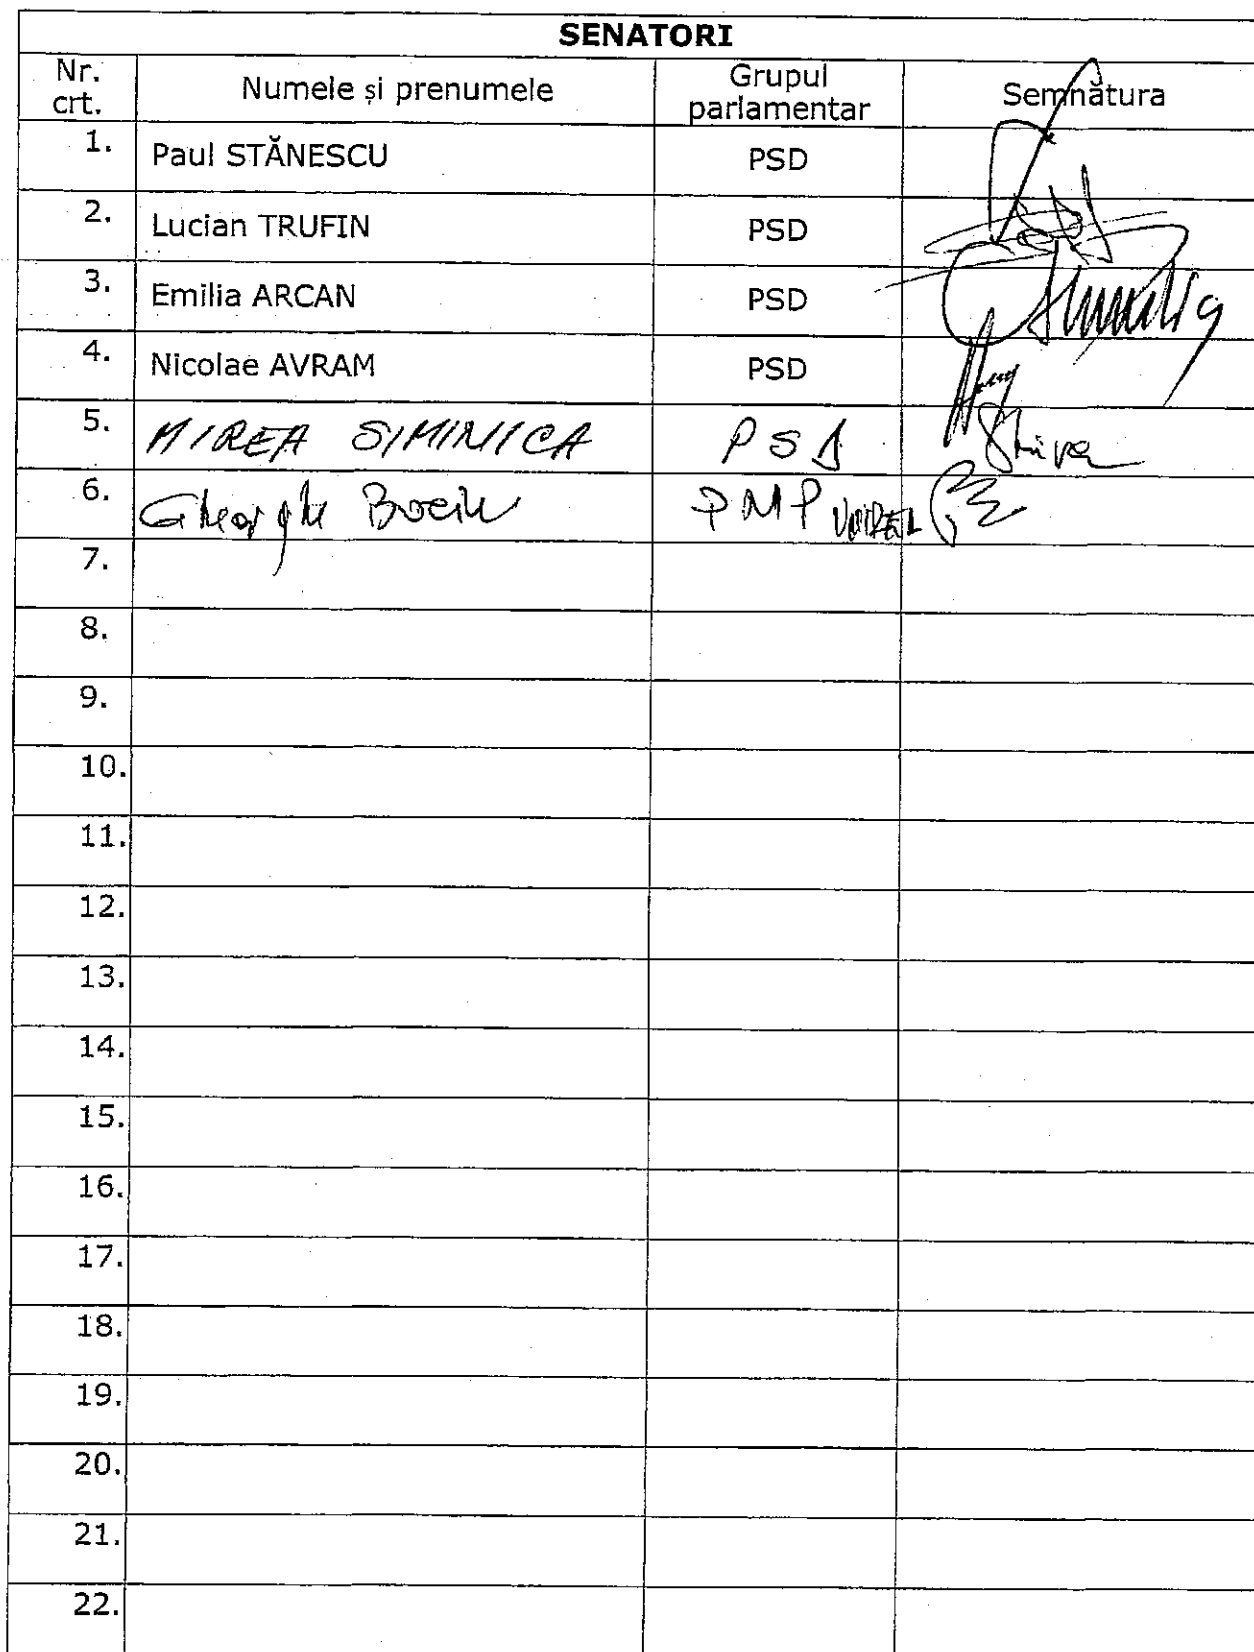 SENATORI
Nr. crt. Numele și prenumele Grupul parlamentar Semnătura
1. Paul STĂNESCU PSD
2. Lucian TRUFIN PSD
3. Emilia ARCAN PSD
4. Nicolae AVRAM PSD
5. MIREA SIMINICA PSD
6. Gheorghe PMP
7.
8.
9.
10.
11.
12.
13.
14.
15.
16.
17.
18.
19.
20.
21.
22.